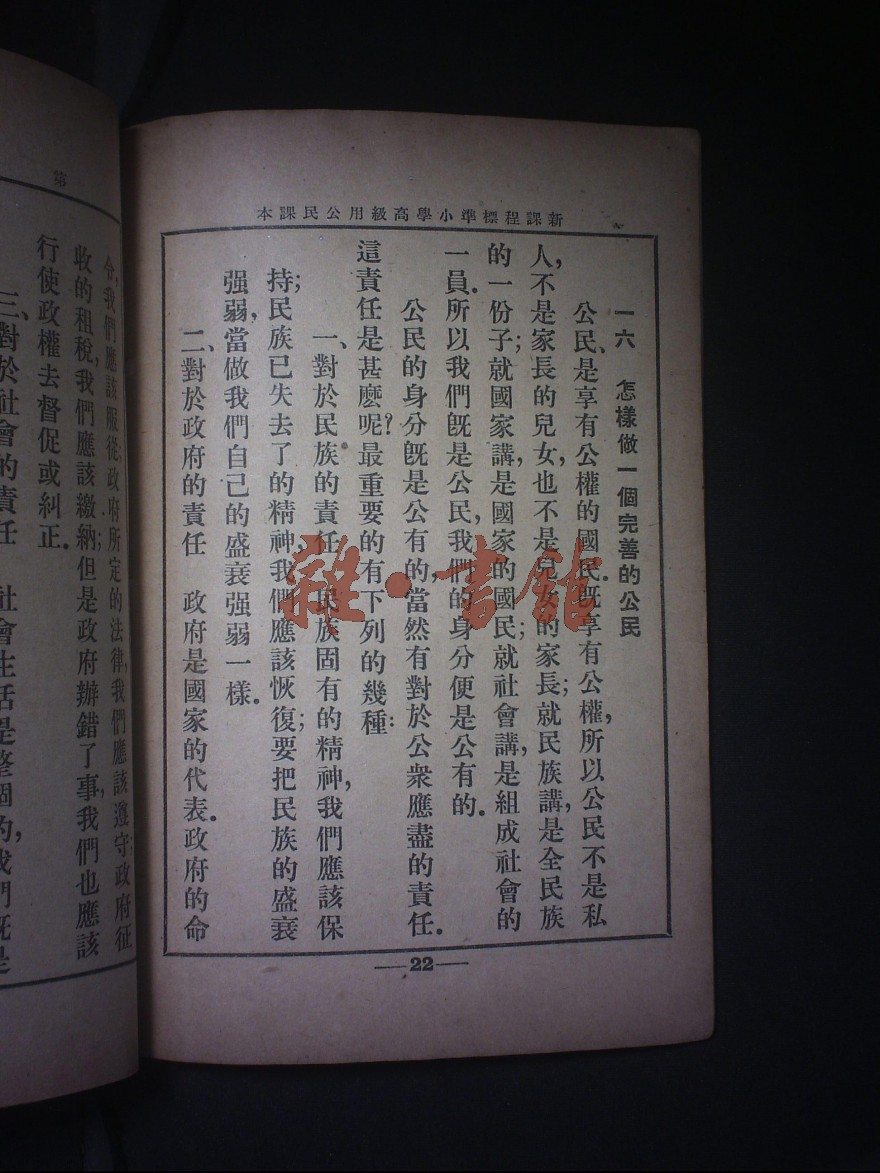 新課程標準小學高級用公民課本
一六　怎樣做一個完善的公民
公民、是享有公權的國民。既享有公權，所以公民不是私
人，不是家長的兒女，也不是兒女的家長；就民族講，是全民族
的一份子；就國家講，是國家的國民；就社會講，是組成社會的
一員。所以我們既是公民，我們的身分便是公有的。
公民的身分既是公有的，當然有對於公衆應盡的責任。
這責任是甚麽呢？最重要的有下列的幾種：
一、對於民族的責任　民族固有的精神，我們應該保
持；民族已失去了的精神，我們應該恢復；要把民族的盛衰
强弱，當做我們自己的盛衰强弱一樣。
二、對於政府的責任　政府是國家的代表。政府的命
22
雜·書館
第
令，我們應該服從；政府所定的法律，我們應該遵守；政府征
收的租稅，我們應該繳納；但是政府辦錯了事，我們也應該
行使政權去督促或糾正。
三、對於社會的責任　社會生活是整個的，我們既是